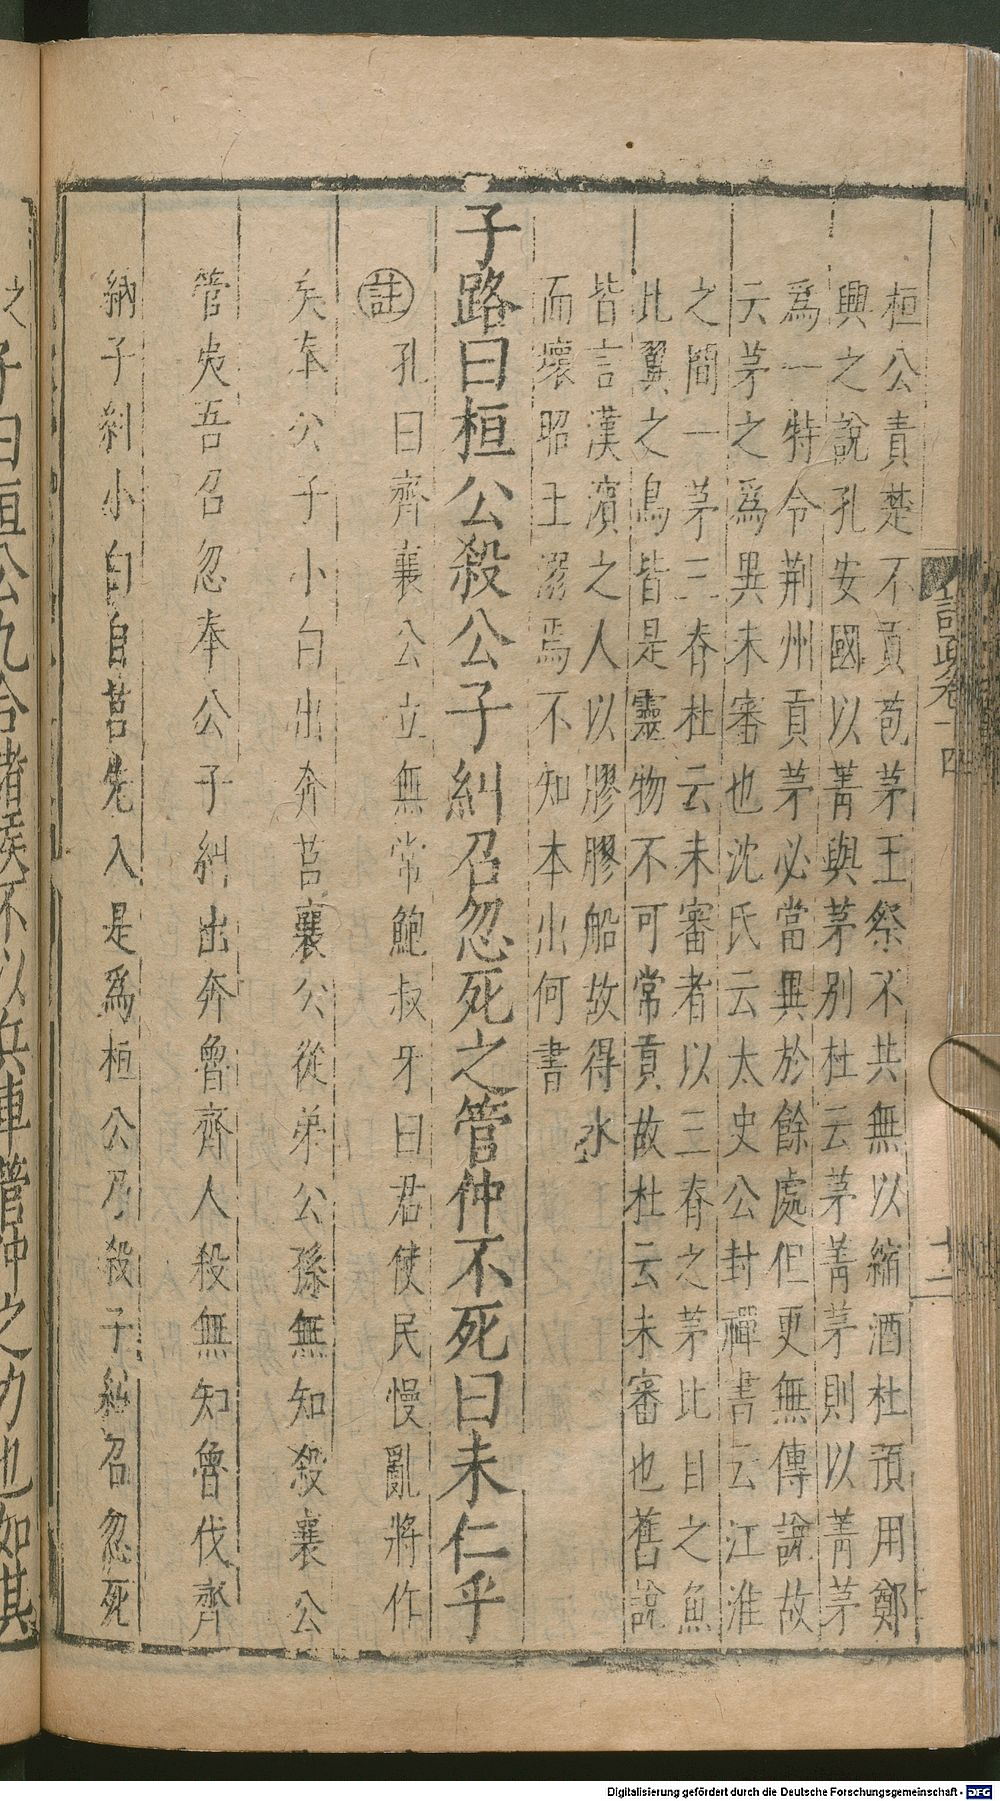 桓公責楚不貢苞茅王祭不共無以縮酒杜預用鄭
興之說孔安國以菁與茅別杜云茅菁茅則以菁茅
爲一特令荆州貢茅必當異於餘處但更無傳說故
云茅之爲異未審也沈氏云太史公封禪書云江淮
之間一茅三脊杜云未審者以三脊之茅比目之魚
比翼之鳥皆是靈物不可常貢故杜云未審也舊說
皆言漢濱之人以膠膠船故得水
而壞昭王溺焉不知本出何書
子路曰桓公殺公子糾召忽死之管仲不死曰未仁乎
註 孔曰齊襄公立無常鮑叔牙曰君使民慢亂將作
矣奉公子小白出奔莒襄公從弟公孫無知殺襄公
管夷吾召忽奉公子糾出奔魯齊人殺無知魯伐齊
納子糾小白自莒先入是爲桓公乃殺子糾召忽死
卷十四
十二
之子曰桓公九合諸侯不以兵車管仲之力也如其
Digitalisierung gefördert durch die Deutsche Forschungsgemeinschaft - DFG